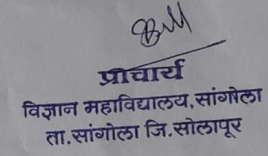 प्राचार्य
विज्ञान महाविद्यालय, सांगोला
ता.सांगोला जि.सोलापूर